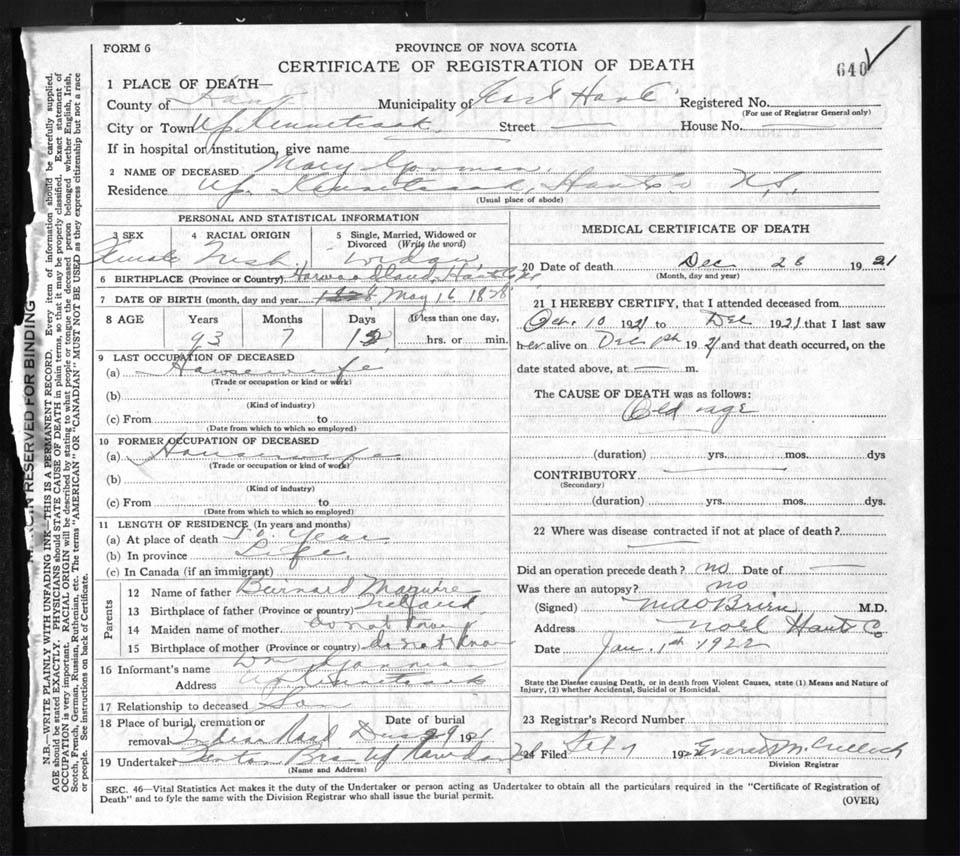 FORM 6
PROVINCE OF NOVA SCOTIA
CERTIFICATE OF REGISTRATION OF DEATH
640
1 PLACE OF DEATH—
County of Hants Municipality of East Hants Registered No.
(For use of Registrar General only)
City or Town Up Kennetcook Street — House No. —
If in hospital or institution, give name —
2 NAME OF DECEASED Mary Gorman
Residence Up. Kennetcook, Hants Co N.S.
(Usual place of abode)
PERSONAL AND STATISTICAL INFORMATION
3 SEX 4 RACIAL ORIGIN 5 Single, Married, Widowed or Divorced (Write the word)
Female Irish Widow
6 BIRTHPLACE (Province or Country) Hants Co
7 DATE OF BIRTH (month, day and year May 16 1828
8 AGE Years Months Days If less than one day,
93 7 12 hrs. or min.
9 LAST OCCUPATION OF DECEASED
(a) Housewife
(Trade or occupation or kind or work)
(b)
(Kind of industry)
(c) From to
(Date from which to which so employed)
10 FORMER OCCUPATION OF DECEASED
(a) Housewife
(Trade or occupation or kind of work)
(b)
(Kind of industry)
(c) From to
(Date from which to which so employed)
11 LENGTH OF RESIDENCE (In years and months)
(a) At place of death Year
(b) In province Life
(c) In Canada (if an immigrant)
Parents
12 Name of father Bernard Maguire
13 Birthplace of father (Province or country) Ireland
14 Maiden name of mother do not know
15 Birthplace of mother (Province or country) do not know
16 Informant's name Wm Gorman
Address Up Kennetcook
17 Relationship to deceased Son
18 Place of burial, cremation or removal Indian Road Date of burial Dec 29 1921
19 Undertaker Bros Up Rawdon
(Name and Address)
MEDICAL CERTIFICATE OF DEATH
20 Date of death Dec 28 1921
(Month, day and year)
21 I HEREBY CERTIFY, that I attended deceased from
Oct. 10 1921 to Dec 1921 that I last saw
her alive on Dec 1921 and that death occurred, on the
date stated above, at — m.
The CAUSE OF DEATH was as follows:
Old age
(duration) yrs. mos. dys
CONTRIBUTORY —
(Secondary)
(duration) yrs. mos. dys.
22 Where was disease contracted if not at place of death?
—
Did an operation precede death? no Date of —
Was there an autopsy? no
(Signed) M A O'Brien M.D.
Address Noel Hants Co
Date Jan. 1st 1922
State the Disease causing Death, or in death from Violent Causes, state (1) Means and Nature of
Injury, (2) whether Accidental, Suicidal or Homicidal.
23 Registrar's Record Number
24 Filed Feb 7 192 Everett McCulloch
Division Registrar
SEC. 46—Vital Statistics Act makes it the duty of the Undertaker or person acting as Undertaker to obtain all the particulars required in the "Certificate of Registration of
Death" and to fyle the same with the Division Registrar who shall issue the burial permit.
(OVER)
RESERVED FOR BINDING
N.B.—WRITE PLAINLY WITH UNFADING INK—THIS IS A PERMANENT RECORD. Every item of information should be carefully supplied.
AGE should be stated EXACTLY. PHYSICIANS should STATE CAUSE OF DEATH in plain terms, so that it may be properly classified. Exact statement of
OCCUPATION is very important. RACIAL ORIGIN will be described by stating to what people or tongue the deceased person belonged whether English, Irish,
Scotch, French, German, Russian, Ruthenian, etc. The terms "AMERICAN" OR "CANADIAN" MUST NOT BE USED as they express citizenship but not a race
or people. See instructions on back of Certificate.